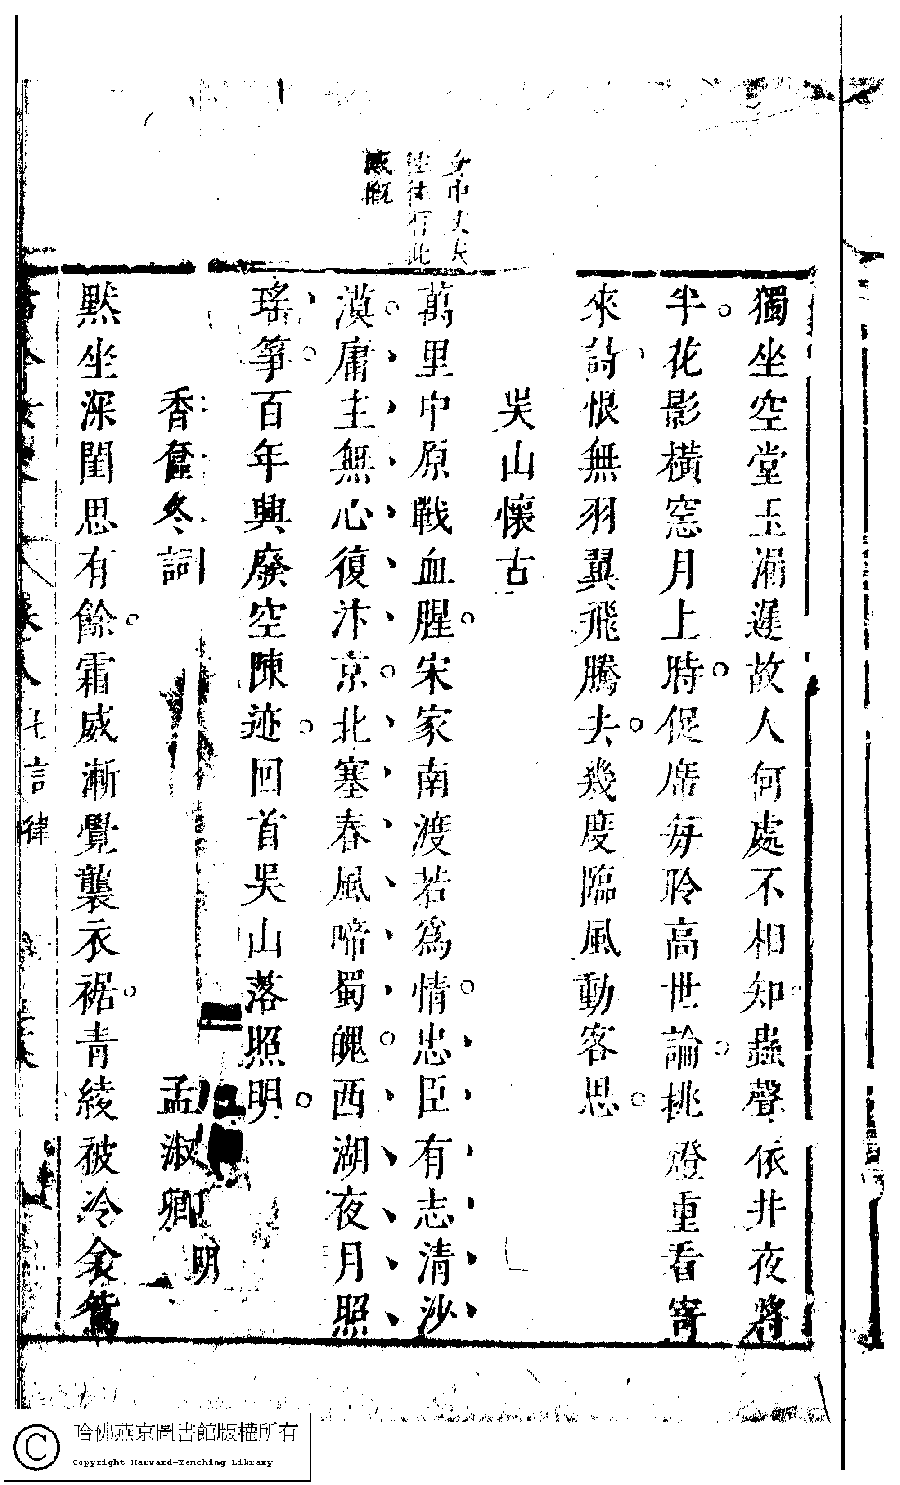 獨坐空堂玉漏遲故人何處不相知蟲聲依井夜將
半花影橫窓月上時促席每聆高世論挑燈重看寄
來詩恨無羽翼飛騰去幾度臨風動客思
吳山懷古
萬里中原戰血腥宋家南渡若為情忠臣有志清沙
漠庸主無心復汴京北塞春風啼蜀魄西湖夜月照
瑤箏百年興廢空陳迹回首吳山落照明
香奩冬詞
孟淑卿 明
默坐深閨思有餘霜威漸覺襲衣裾青綾被冷余鴛
七言律
感慨
哈佛燕京圖書館版權所有
Copyright Harvard-Yenching Library